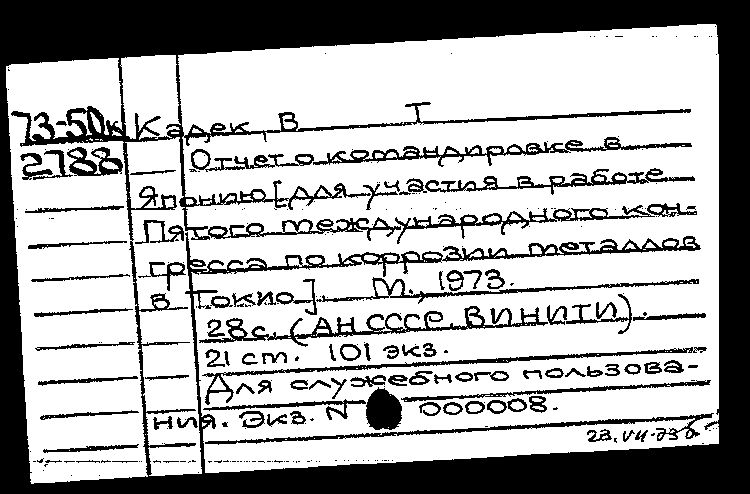 73-50к Кадек, В Т
2788 Отчет о командировке в
Японию [для участия в работе
Пятого международного кон-
гресса по коррозии металлов
в Токио]. М., 1973.
28с. (АН СССР. ВИНИТИ).
21 ст. 101 экз.
Для служебного пользова-
ния. Экз. N 000008.
23.VII.73